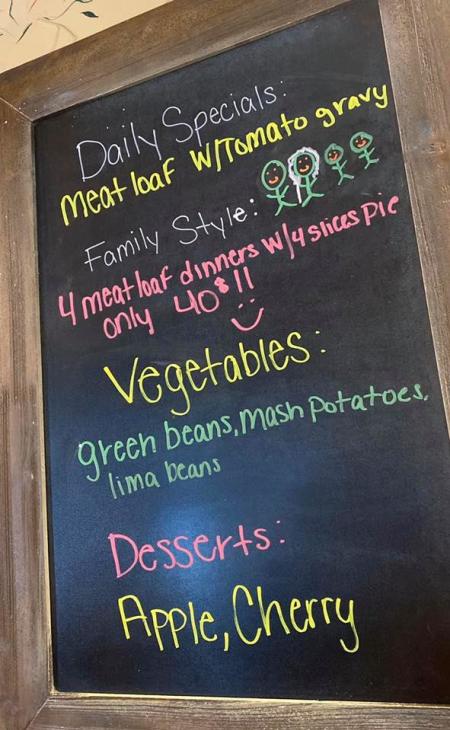 Daily Specials:
Meat loaf W/Tomato gravy
Family Style:
4 meat loaf dinners W/4 slices pie
only 40$!!
Vegetables:
green beans, mash potatoes,
lima beans
Desserts:
Apple, Cherry